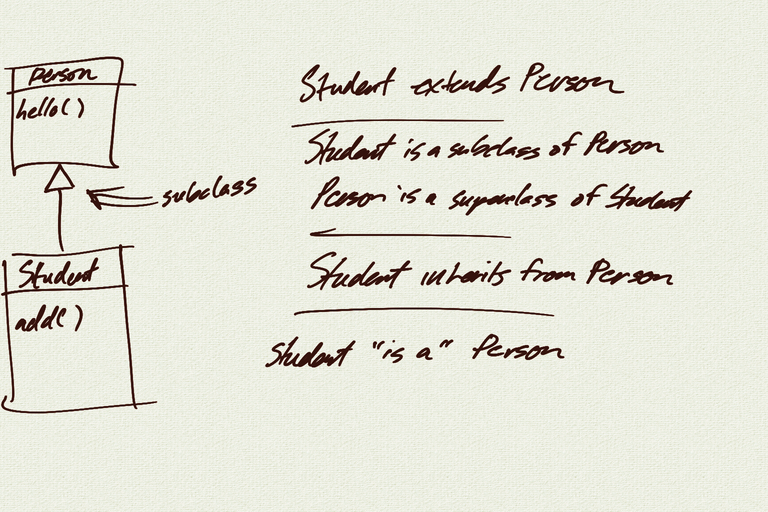 Person
hello()
subclass
Student
add()
Student extends Person
Student is a subclass of Person
Person is a superclass of Student
Student inherits from Person
Student "is a" Person